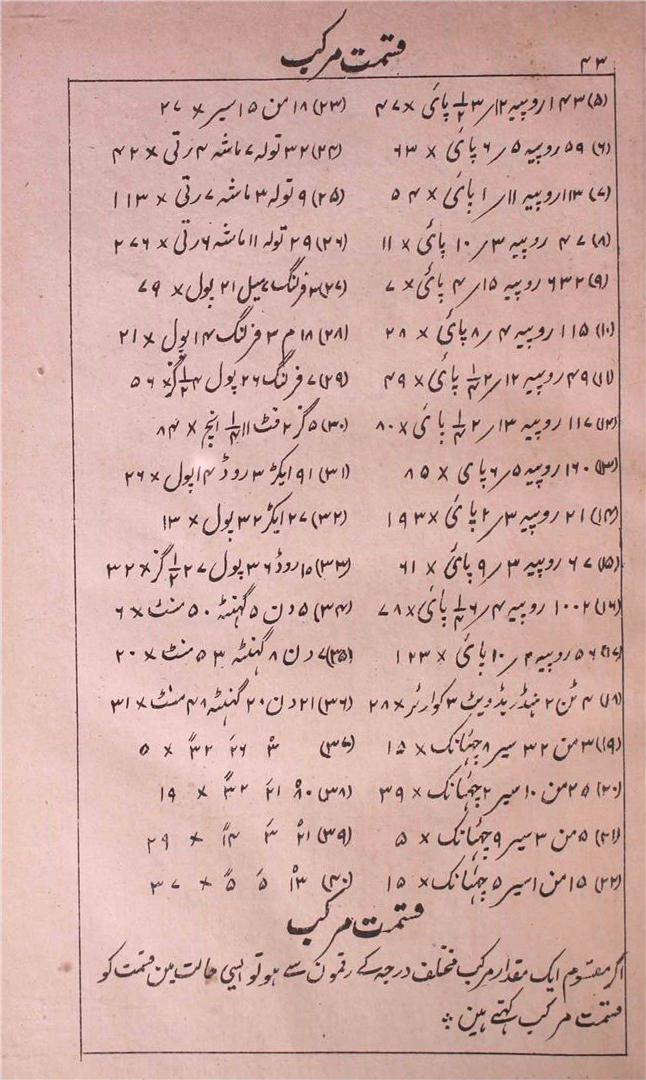 ۴۳
قسمت مرکب
(۵) ۱۴۳ روپیہ ۱۲؍ ۳ ۱/۲ پائی × ۴۷
(۶) ۵۹ روپیہ ۵؍ ۶ پائی × ۶۳
(۷) ۱۱۳ روپیہ ۱۱؍ ۱ پائی × ۵۴
(۸) ۴۷ روپیہ ۳؍ ۱۰ پائی × ۱۱
(۹) ۶۳۲ روپیہ ۱۵؍ ۴ پائی × ۷
(۱۰) ۱۱۵ روپیہ ۴؍ ۸ پائی × ۲۸
(۱۱) ۴۹ روپیہ ۱۲؍ ۲ ۱/۴ پائی × ۴۹
(۱۲) ۱۱۷ روپیہ ۱۳؍ ۲ ۱/۴ پائی × ۸۰
(۱۳) ۱۶۰ روپیہ ۵؍ ۶ پای × ۸۵
(۱۴) ۲۱ روپیہ ۳؍ ۲ پائی × ۱۹۳
(۱۵) ۶۷ روپیہ ۳؍ ۹ پائی × ۶۱
(۱۶) ۱۰۰۲ روپیہ ۴؍ ۶ ۱/۴ پائی × ۷۸
(۱۷) ۵۶ روپیہ ۲؍ ۱۰ پائی × ۱۲۳
(۱۸) ۴ ٹن ۲ ہنڈریڈویٹ ۳ کوارٹر × ۲۸
(۱۹) ۳ من ۳۲ سیر ۸ چھٹانک × ۱۵
(۲۰) ۲۵ من ۱۰ سیر ۲ چھٹانک × ۳۹
(۲۱) ۵ من ۳ سیر ۹ چھٹانک × ۵
(۲۲) ۱۵ من ۱ سیر ۵ چھٹانک × ۱۵
(۲۳) ۱۸ من ۱۵ سیر × ۲۷
(۲۴) ۳۲ تولہ ۷ ماشہ ۴ رتی × ۴۲
(۲۵) ۹ تولہ ۳ ماشہ ۷ رتی × ۱۱۳
(۲۶) ۲۹ تولہ ۱۱ ماشہ ۶ رتی × ۲۷۶
(۲۷) ۲ فرلنگ ۷ میل ۲۱ پول × ۷۹
(۲۸) ۱۸ م ۳ فرلنگ ۱۴ پول × ۲۱
(۲۹) ۷ فرلنگ ۲۶ پول ۴ ۱/۲ گز × ۵۶
(۳۰) ۵ گز ۲ فٹ ۱۱ ۱/۴ انچ × ۸۴
(۳۱) ۹۱ ایکڑ ۳ روڈ ۱۴ پول × ۲۶
(۳۲) ۲۷ ایکڑ ۳۲ پول × ۱۳
(۳۳) ۱۵ روڈ ۳۶ پول ۲۷ ۱/۲ گز × ۳۲
(۳۴) ۵ دن ۵ گھنٹہ ۵۰ منٹ × ۶
(۳۵) ۷ دن ۸ گھنٹہ ۳۵ منٹ × ۲۰
(۳۶) ۲۱ دن ۲۰ گھنٹہ ۴۸ منٹ × ۳۱
(۳۷) ۳° ۲۶′ ۳۲″ × ۵
(۳۸) ۸۰° ۲۱′ ۳۲″ × ۱۹
(۳۹) ۲۱° ۳′ ۱۴″ × ۲۹
(۴۰) ۱۳° ۵′ ۵″ × ۳۷
قسمت مرکب
اگر مقسوم ایک مقدار مرکب مختلف درجہ کے رقمون سے ہو تو ایسی حالت مین قسمت کو
قسمت مرکب کہتے ہین ؞